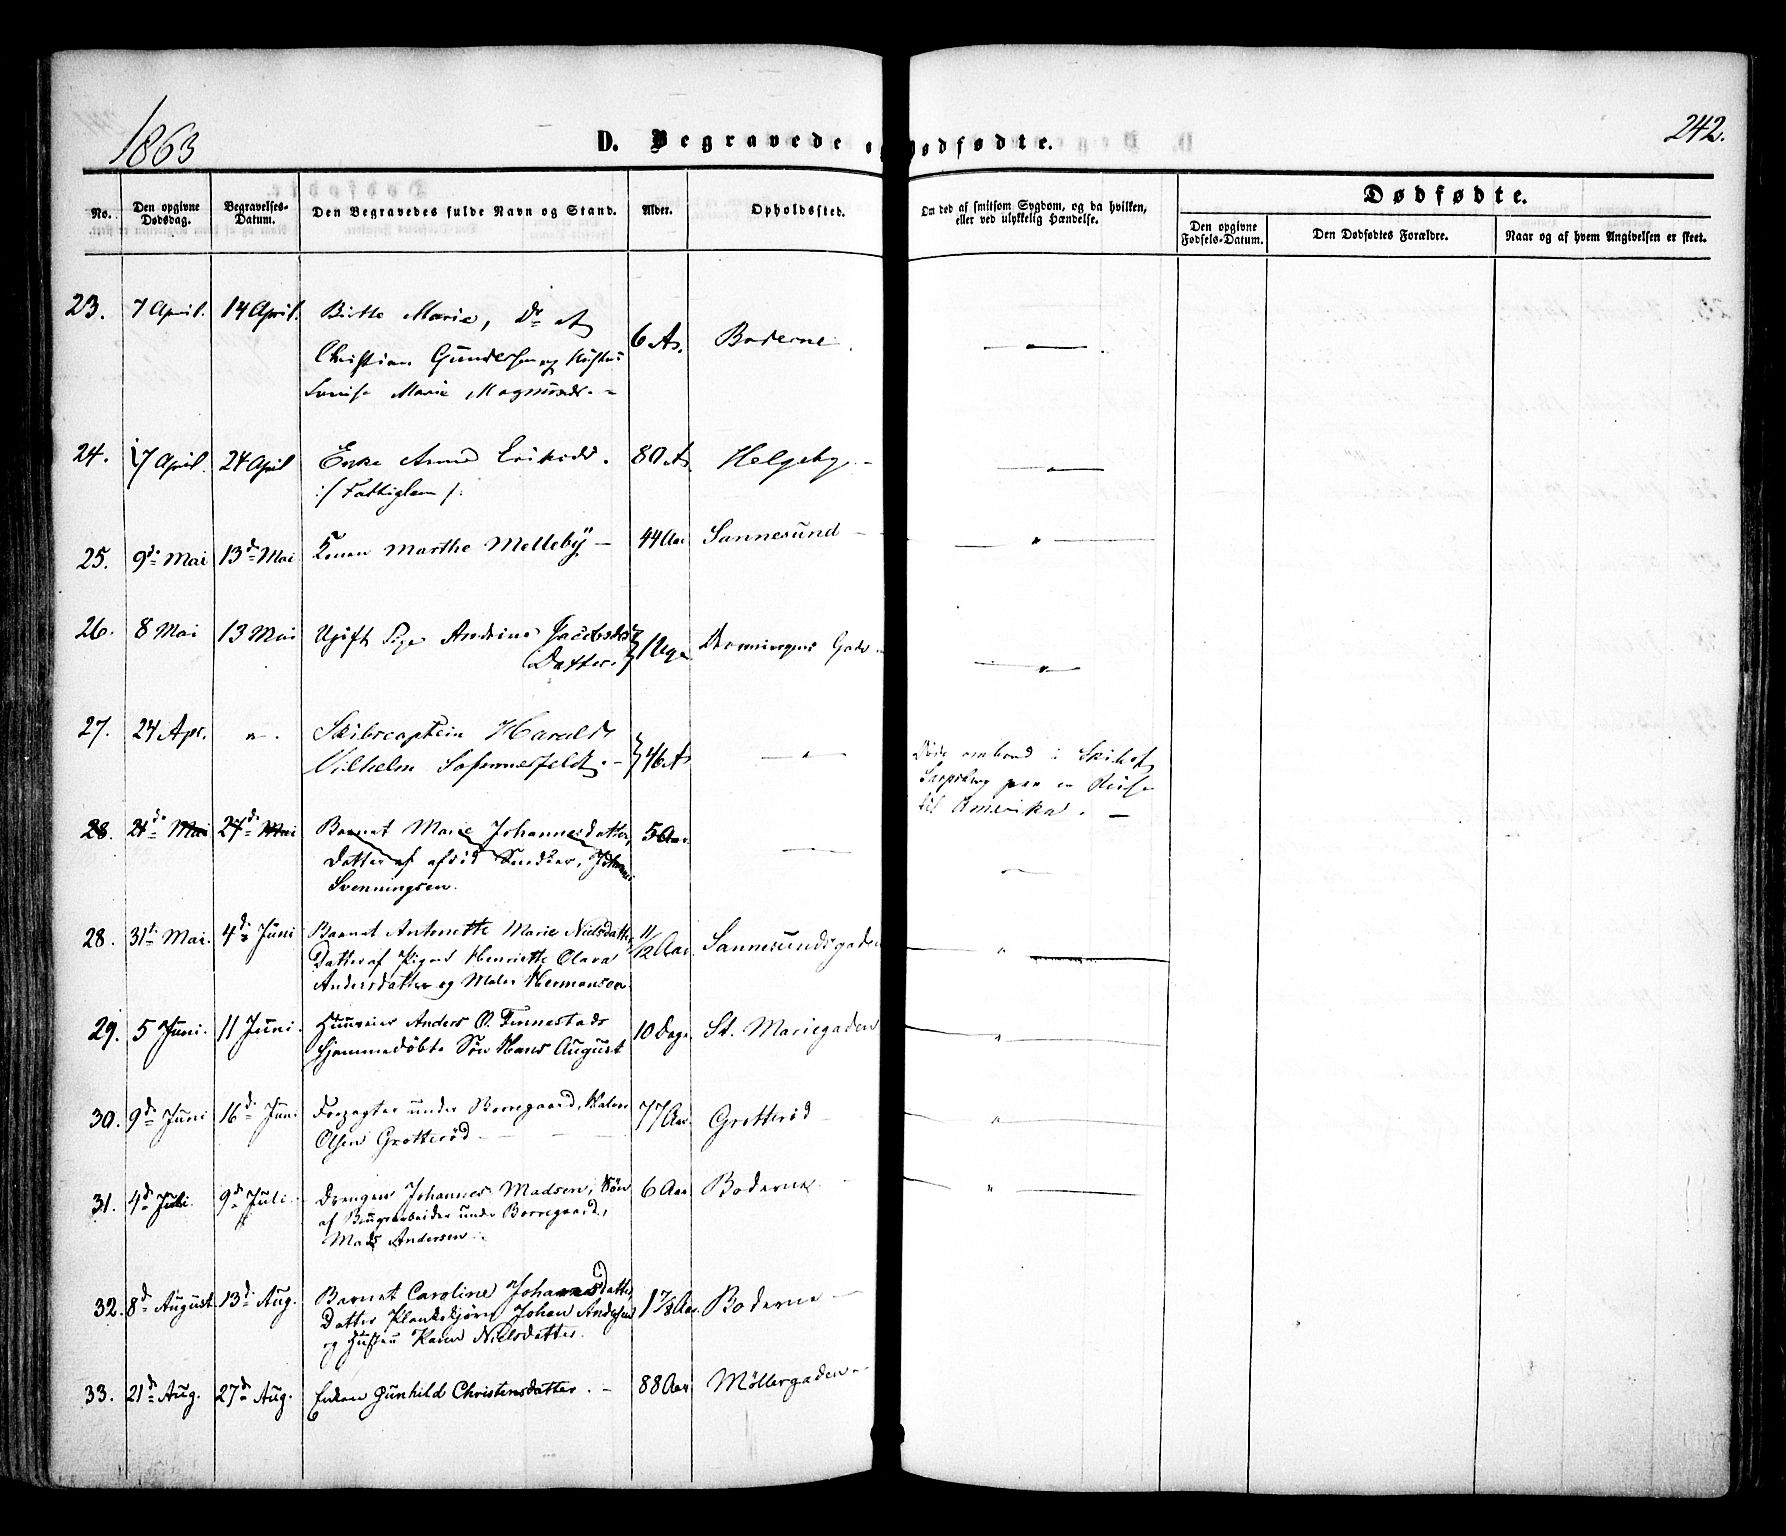 1863
D. Begravede o dødfødte.
242.
No.
Den opgivne Dødsdag.
Begravelses-Datum.
Den Begravedes fulde Navn og Stand.
Alder.
Opholdssted.
Om død af smitsom Sygdom, og da hvilken, eller ved ulykkelig Hændelse.
Dødfødte.
Den opgivne Fødsels-Datum.
Den Dødfødtes Forældre.
Naar og af hvem Angivelsen er skeet.
23. 7 April. 14 April. Birthe Marie, Dr af 6 A. Boderne
Christian Gundersen og Hustru
Lovise Marie Magnusd.
24. 17 April. 24 April Enke Anne Eriksd. 80 A. Helgeby
:/ Fattiglem /:
25. 9d Mai 13d Mai Konen Marthe Melleby 44 Aar Sannesund
26. 8 Mai 13 Mai Ugift Pige Andrine Jacobs
Datter. Dronningens Gade
27. 24 Apr. " Skibscaptein Harald
Vilhelm 46 A "
Døde ombord i Skibet
Sarpsborg paa en Reise
til Amerika.
28. 21d Mai 27d Mai Barnet Marie Johannesdatter, 5 Aar
Datter af afdød Johannes
Svenningsen.
28. 31t Mai. 4d Juni Barnet Antonette Marie Nielsdatter, 11/12 Aar. Sannesundsgaden "
Datter af Pigen Henriette Olava
Andersdatter og Maler Hermansen.
29. 5 Juni. 11 Juni. Huuseier Anders O. Tennestads 10 Dage St. Mariegaden "
hjemmedøbte Søn Hans August
30. 9d Juni 16d Juni. Forpagter under Borregaard, 77 Aar. Grotterød "
Olsen Grotterød
31. 4d Juli. 9d Juli. Drengen Johannes Madsen, Søn 6 Aar Boderne "
af Brugsarbeider under Borregaard,
Mads Andersen
32. 8d August. 13d Aug. Barnet Caroline Johannesdatter, 1 7/8 Aar Boderne
Datter Plankekjører Johan Andersen
og Hustru Karen Nielsdatter.
33. 21d Aug. 27d Aug. Enken Gunhild Christensdatter. 88 Aar Møllergaden